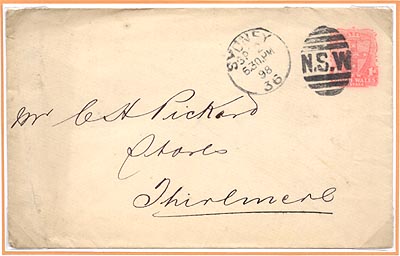 SYDNEY
6.30PM
98
36
N.S.W
Mr C H Pickard
Stores
Thirlmere